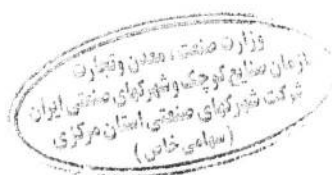 وزارت صنعت، معدن و تجارت
سازمان صنایع کوچک و شهرکهای صنعتی ایران
شرکت شهرکهای صنعتی استان مرکزی
(سهامی خاص)